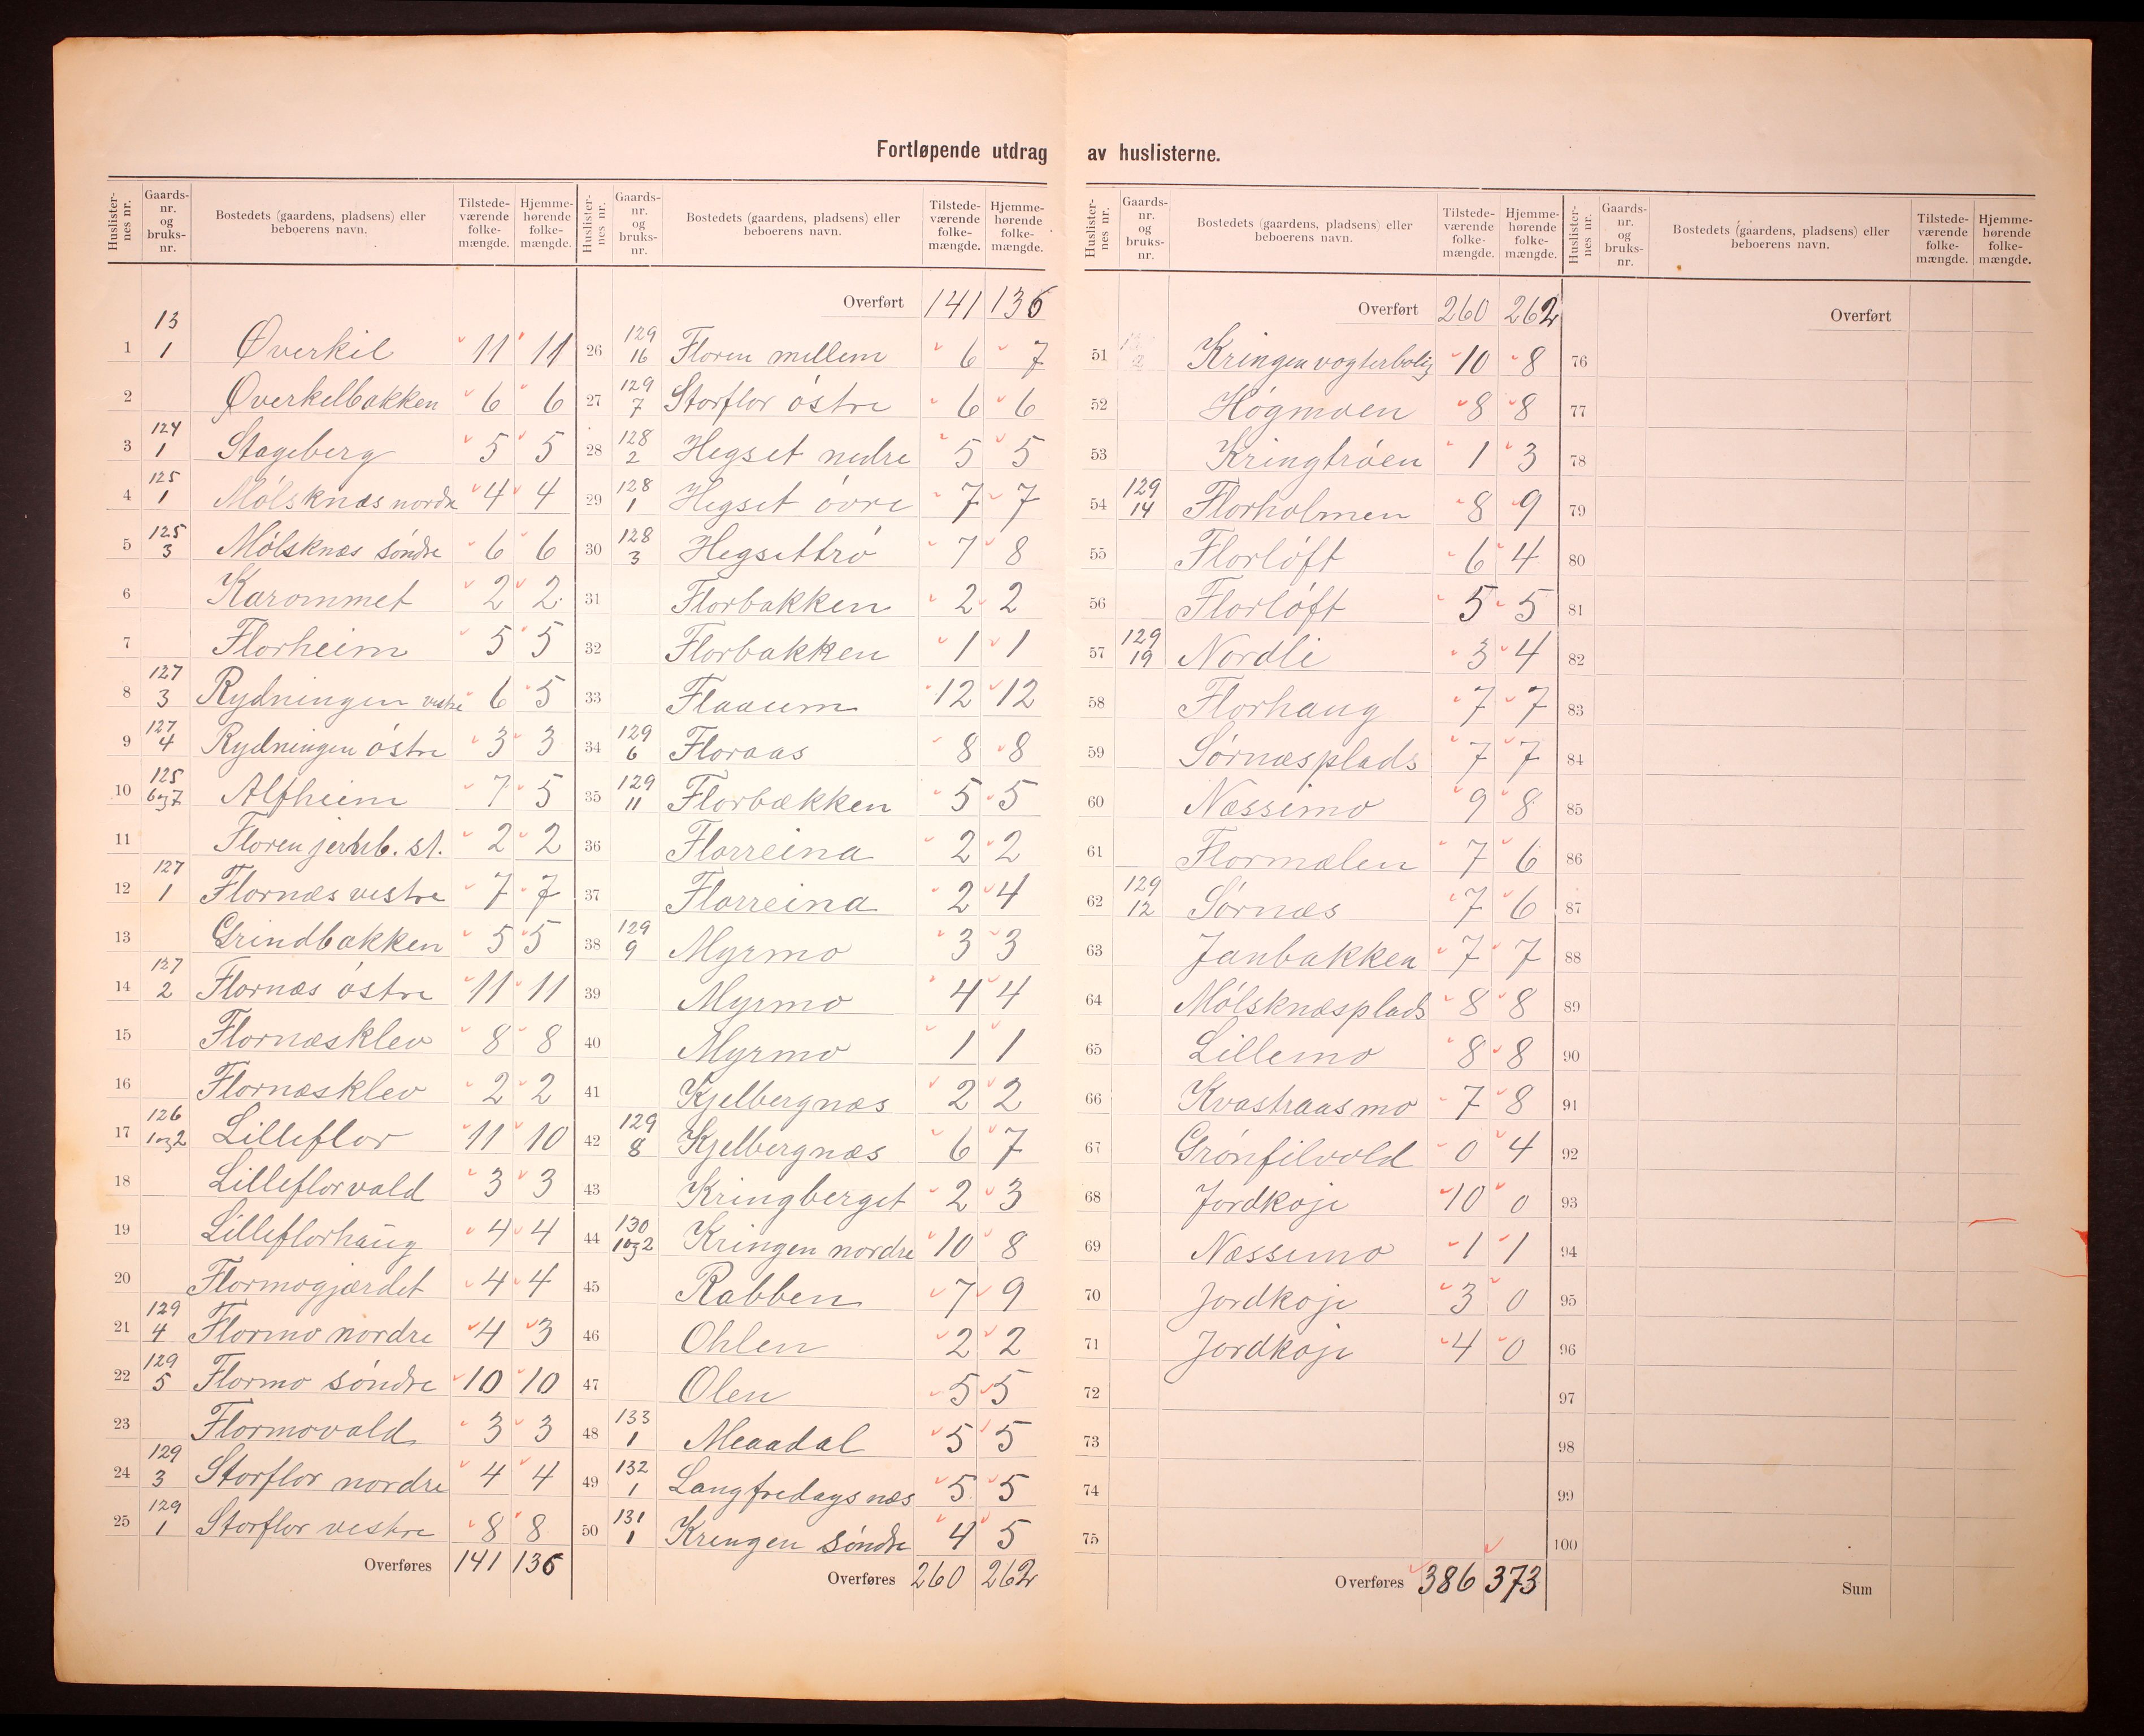 Fortløpende utdrag av huslisterne.
Huslister-nes nr. Gaards-nr. og bruks-nr. Bostedets (gaardens, pladsens) eller beboerens navn. Tilstede-værende folke-mængde. Hjemme-hørende folke-mængde.
1 13 1 Øverkil 11 11
2 Øverkelbakken 6 6
3 124 1 Stageberg 5 5
4 125 1 Mólsknæs nordr 4 4
5 125 3 Mólsknæs sóndre 6 6
6 Karommet 2 2
7 Florheim 5 5
8 127 3 Rydningen vestre 6 5
9 127 4 Rydningen óstre 3 3
10 125 6 og 7 Alfheim 7 5
11 Floren jernb. st. 2 2
12 127 1 Flornæs vestre 7 7
13 Grindbakken 5 5
14 127 2 Flornæs óstre 11 11
15 Flornæsklev 8 8
16 Flornæsklev 2 2
17 126 1 og 2 Lilleflor 11 10
18 Lilleflorvald 3 3
19 Lilleflorhaug 4 4
20 Flormogjærdet 4 4
21 129 4 Flormo nordre 4 3
22 129 5 Flormo sóndre 10 10
23 Flormovald 3 3
24 129 3 Storflor nordre 4 4
25 129 1 Storflor vestre 8 8
Overføres 141 136
Huslister-nes nr. Gaards-nr. og bruks-nr. Bostedets (gaardens, pladsens) eller beboerens navn. Tilstede-værende folke-mængde. Hjemme-hørende folke-mængde.
Overført 141 136
26 129 16 Floren mellem 6 7
27 129 7 Storflor óstre 6 6
28 128 2 Hegset nedre 5 5
29 128 1 Hegset óvre 7 7
30 128 3 Hegsettró 7 8
31 Florbakken 2 2
32 Florbakken 1 1
33 Flaaum 12 12
34 129 6 Floraas 8 8
35 129 11 Florbækken 5 5
36 Florreina 2 2
37 Florreina 2 4
38 129 9 Myrmo 3 3
39 Myrmo 4 4
40 Myrmo 1 1
41 Kjelbergnæs 2 2
42 129 8 Kjelbergnæs 6 7
43 Kringberget 2 3
44 130 1 og 2 Kringen nordre 10 8
45 Rabben 7 9
46 Ohlen 2 2
47 Olen 5 5
48 133 1 Meaadal 5 5
49 132 1 Langfredagsnæs 5 5
50 131 1 Kringen sóndre 4 5
Overføres 260 262
Huslister-nes nr. Gaards-nr. og bruks-nr. Bostedets (gaardens, pladsens) eller beboerens navn. Tilstede-værende folke-mængde. Hjemme-hørende folke-mængde.
Overført 260 262
51 2 Kringen vogterbolig 10 8
52 Hógmoen 8 8
53 Kringtróen 1 3
54 129 14 Florholmen 8 9
55 Florlóft 6 4
56 Florlóft 5 5
57 129 19 Nordli 3 4
58 Florhaug 7 7
59 Sórnæsplads 7 7
60 Næssimo 9 8
61 Flormælen 7 6
62 129 12 Sórnæs 7 6
63 Janbakken 7 7
64 Mólsknæsplads 8 8
65 Lillemo 8 8
66 Kvastraasmo 7 8
67 Grónfilvold 0 4
68 Jordkoje 10 0
69 Næssimo 1 1
70 Jordkoje 3 0
71 Jordkoje 4 0
72
73
74
75
Overføres 386 373
Huslister-nes nr. Gaards-nr. og bruks-nr. Bostedets (gaardens, pladsens) eller beboerens navn. Tilstede-værende folke-mængde. Hjemme-hørende folke-mængde.
Overført
76
77
78
79
80
81
82
83
84
85
86
87
88
89
90
91
92
93
94
95
96
97
98
99
100
Sum